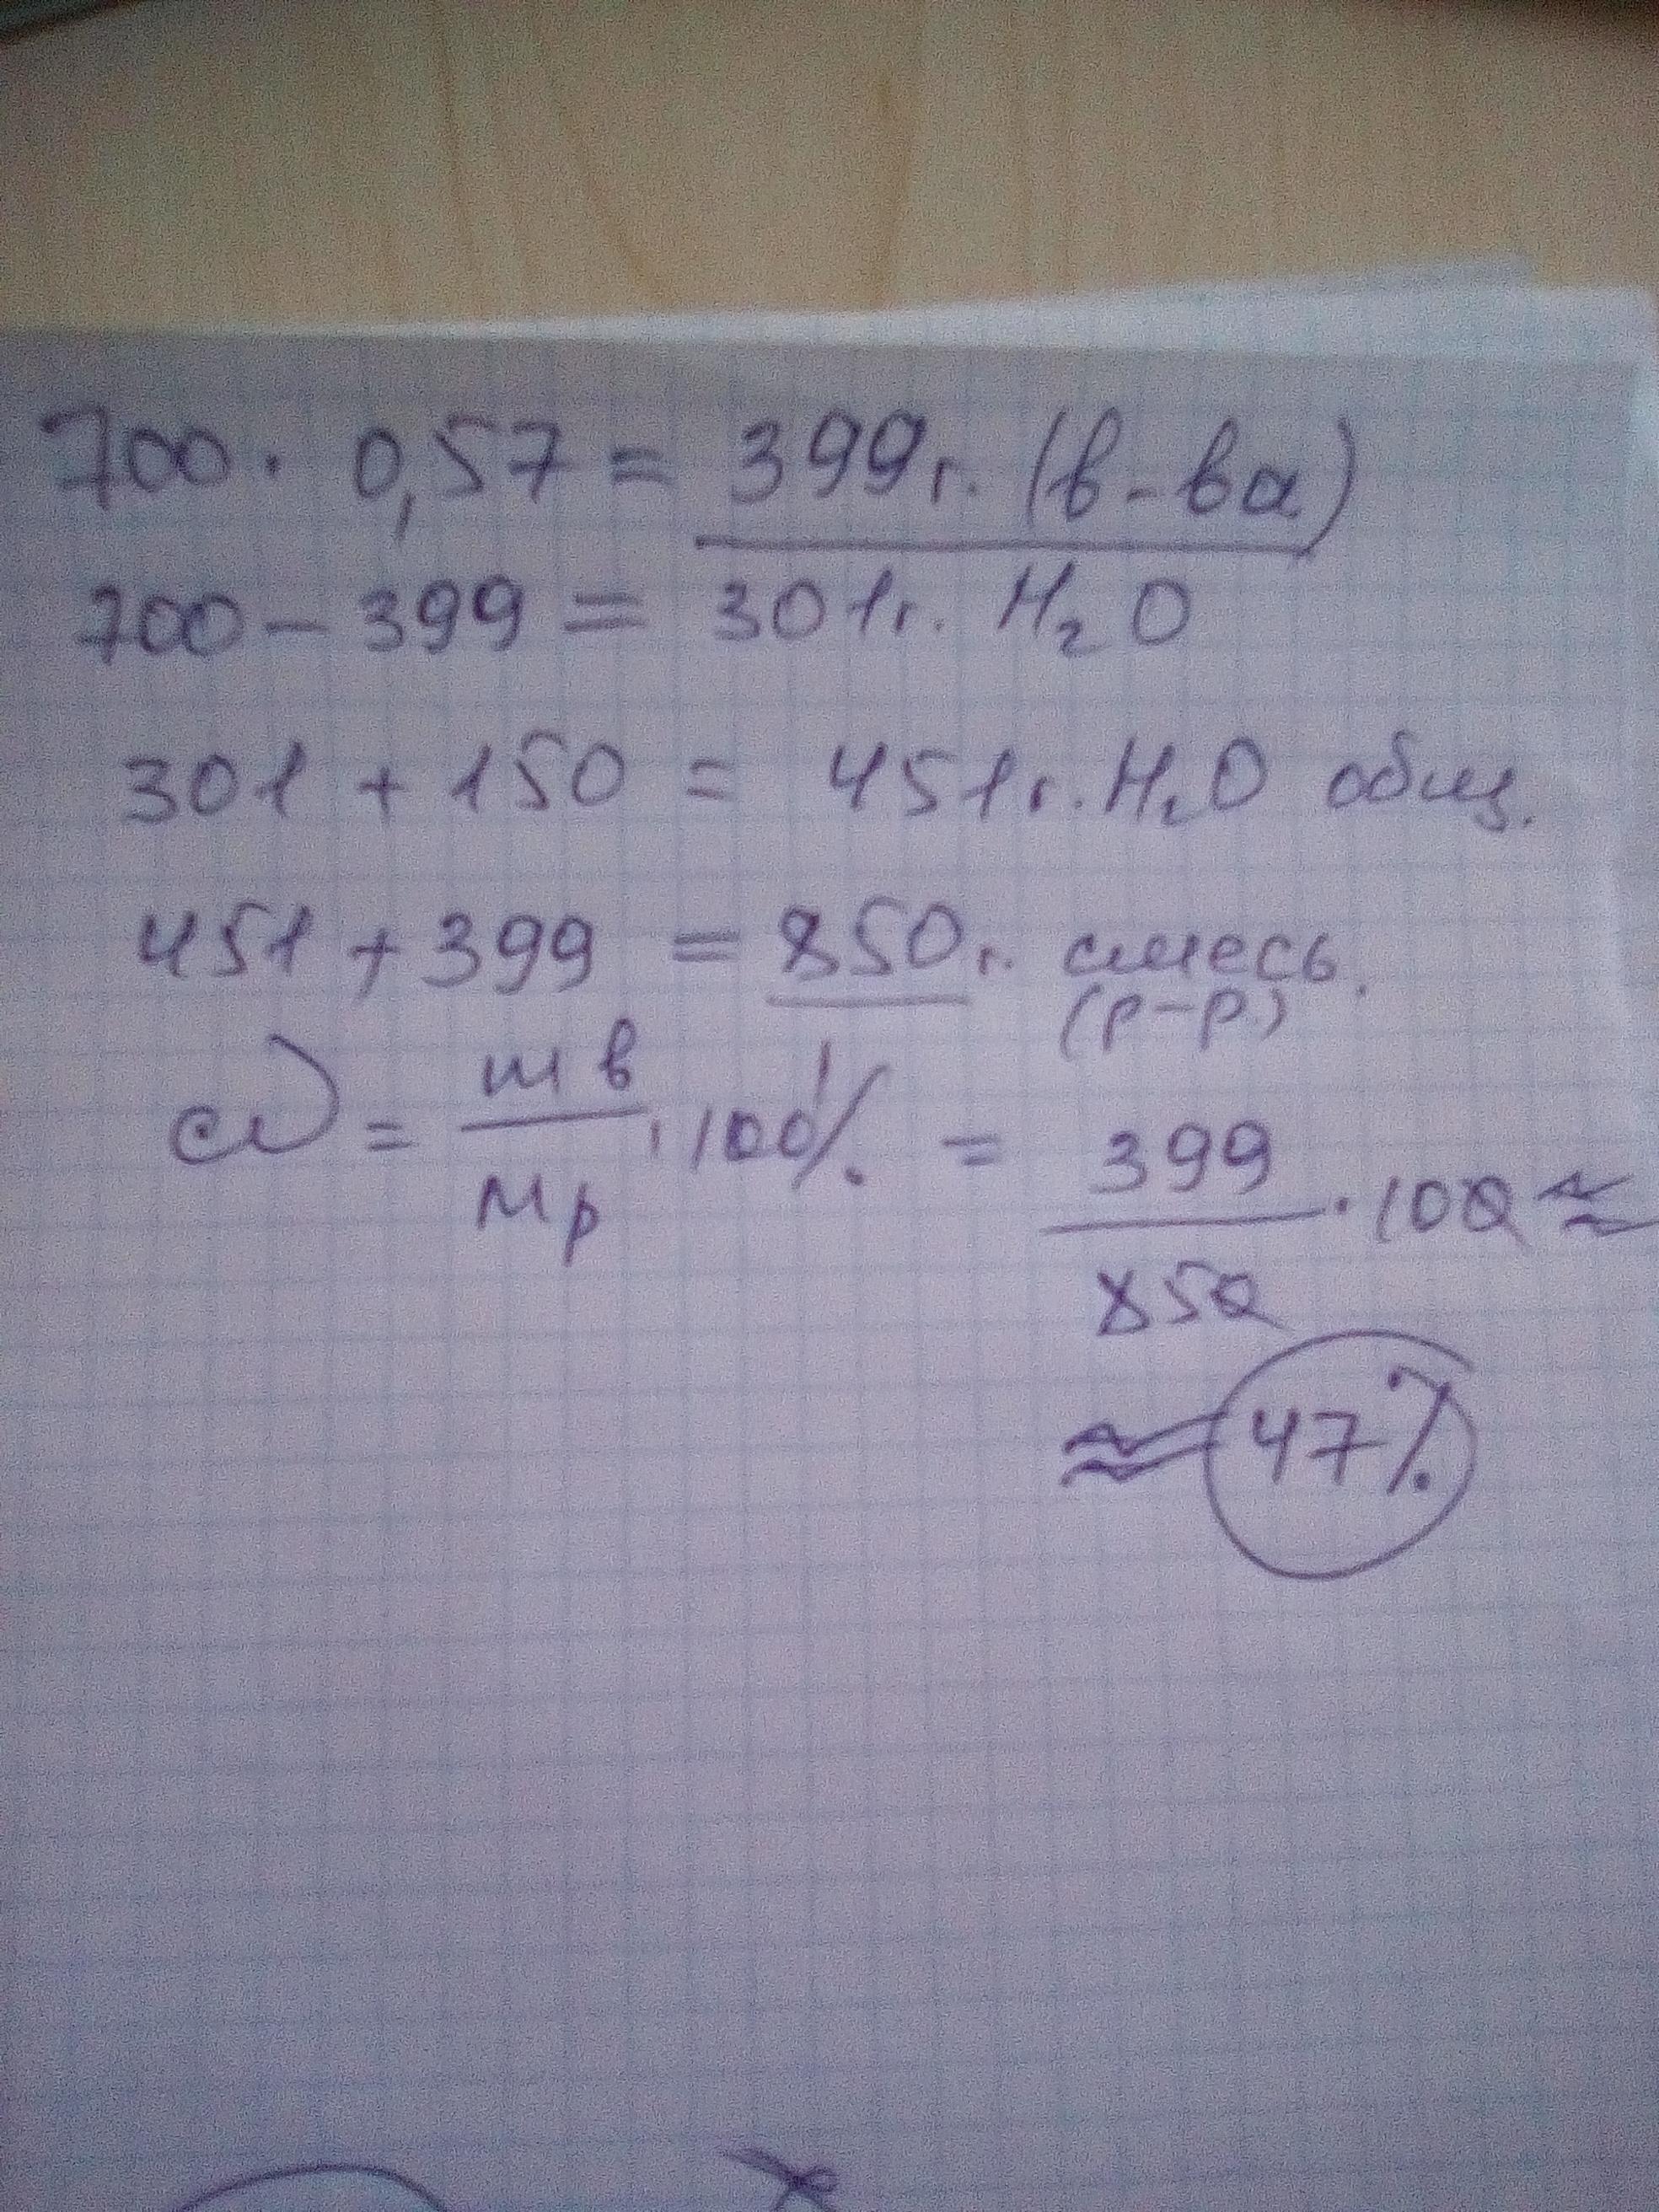 700 · 0,57 = 399 г. (в-ва)
700 - 399 = 301 г. H₂O
301 + 150 = 451 г. H₂O общ.
451 + 399 = 850 г. смесь.
(р-р)
ω = mв / Mр · 100% = 399 / 850 · 100 ≈
≈ 47%